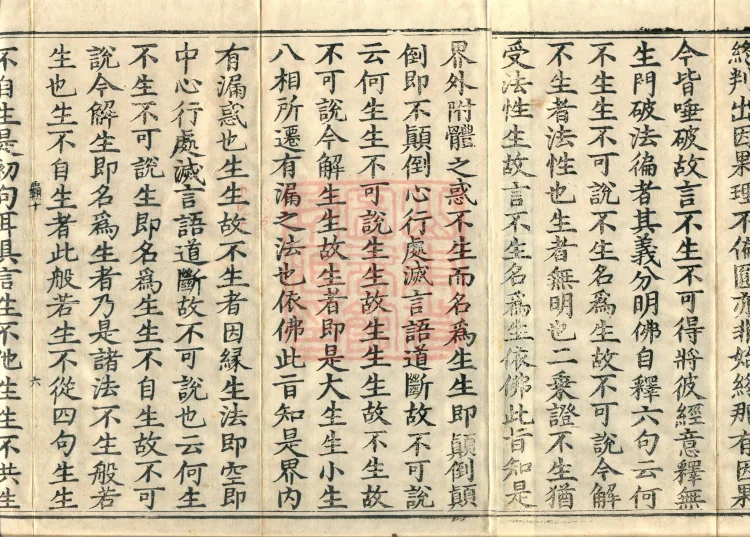 終判出因果理不偏圓亦非始終那有因果
今皆唾破故言不生不可得將彼經意釋無
生門破法徧者其義分明佛自釋六句云何
不生生不可說不生名為生故不可說今解
不生者法性也生者無明也二乘證不生猶
受法性生故言不生名為生依佛此旨知是
界外附體之惑不生而名為生生即顛倒顛
倒即不顛倒心行處滅言語道斷故不可說
云何生生不可說生生故生生生故不生故
不可說今解生生故生者即是大生生小生
八相所遷有漏之法也依佛此旨知是界內
有漏惑也生生故不生者因緣生法即空即
中心行處滅言語道斷故不可說也云何生
不生不可說生即名為生生不自生故不可
說今解生即名為生者乃是諸法不生般若
生也生不自生者此般若生不從四句生生
不自生是初句耳具言生不他生生不共生
六